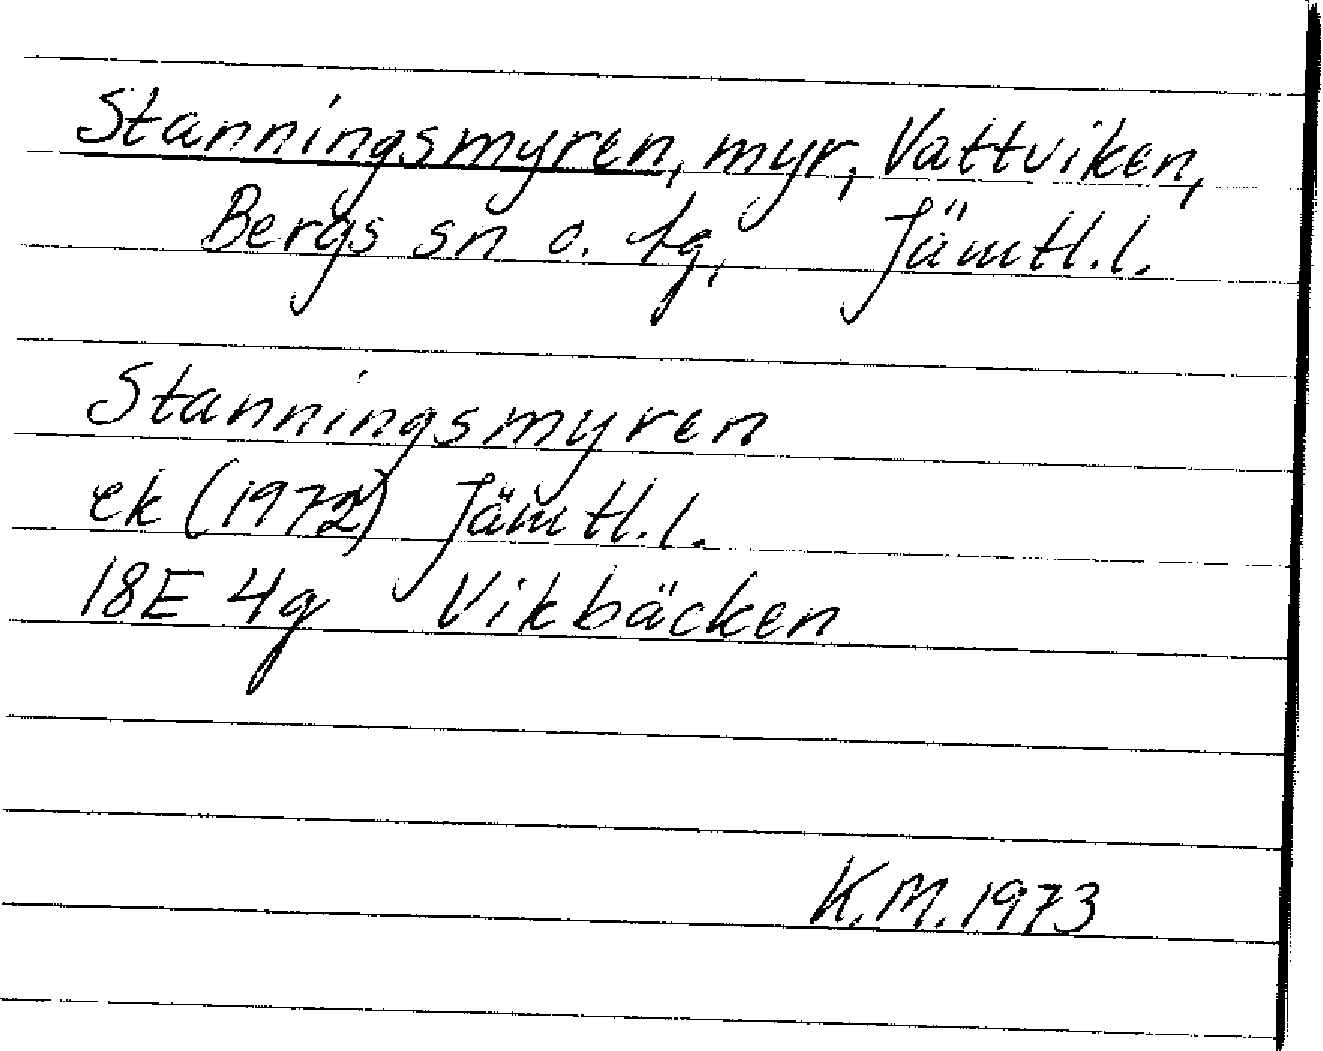 Stanningsmyren, myr, Vattviken,
Bergs sn o. tg, Jämtl.l.
Stanningsmyren
ek (1972) Jämtl.l.
18E 4g Vikbäcken
K.M.1973